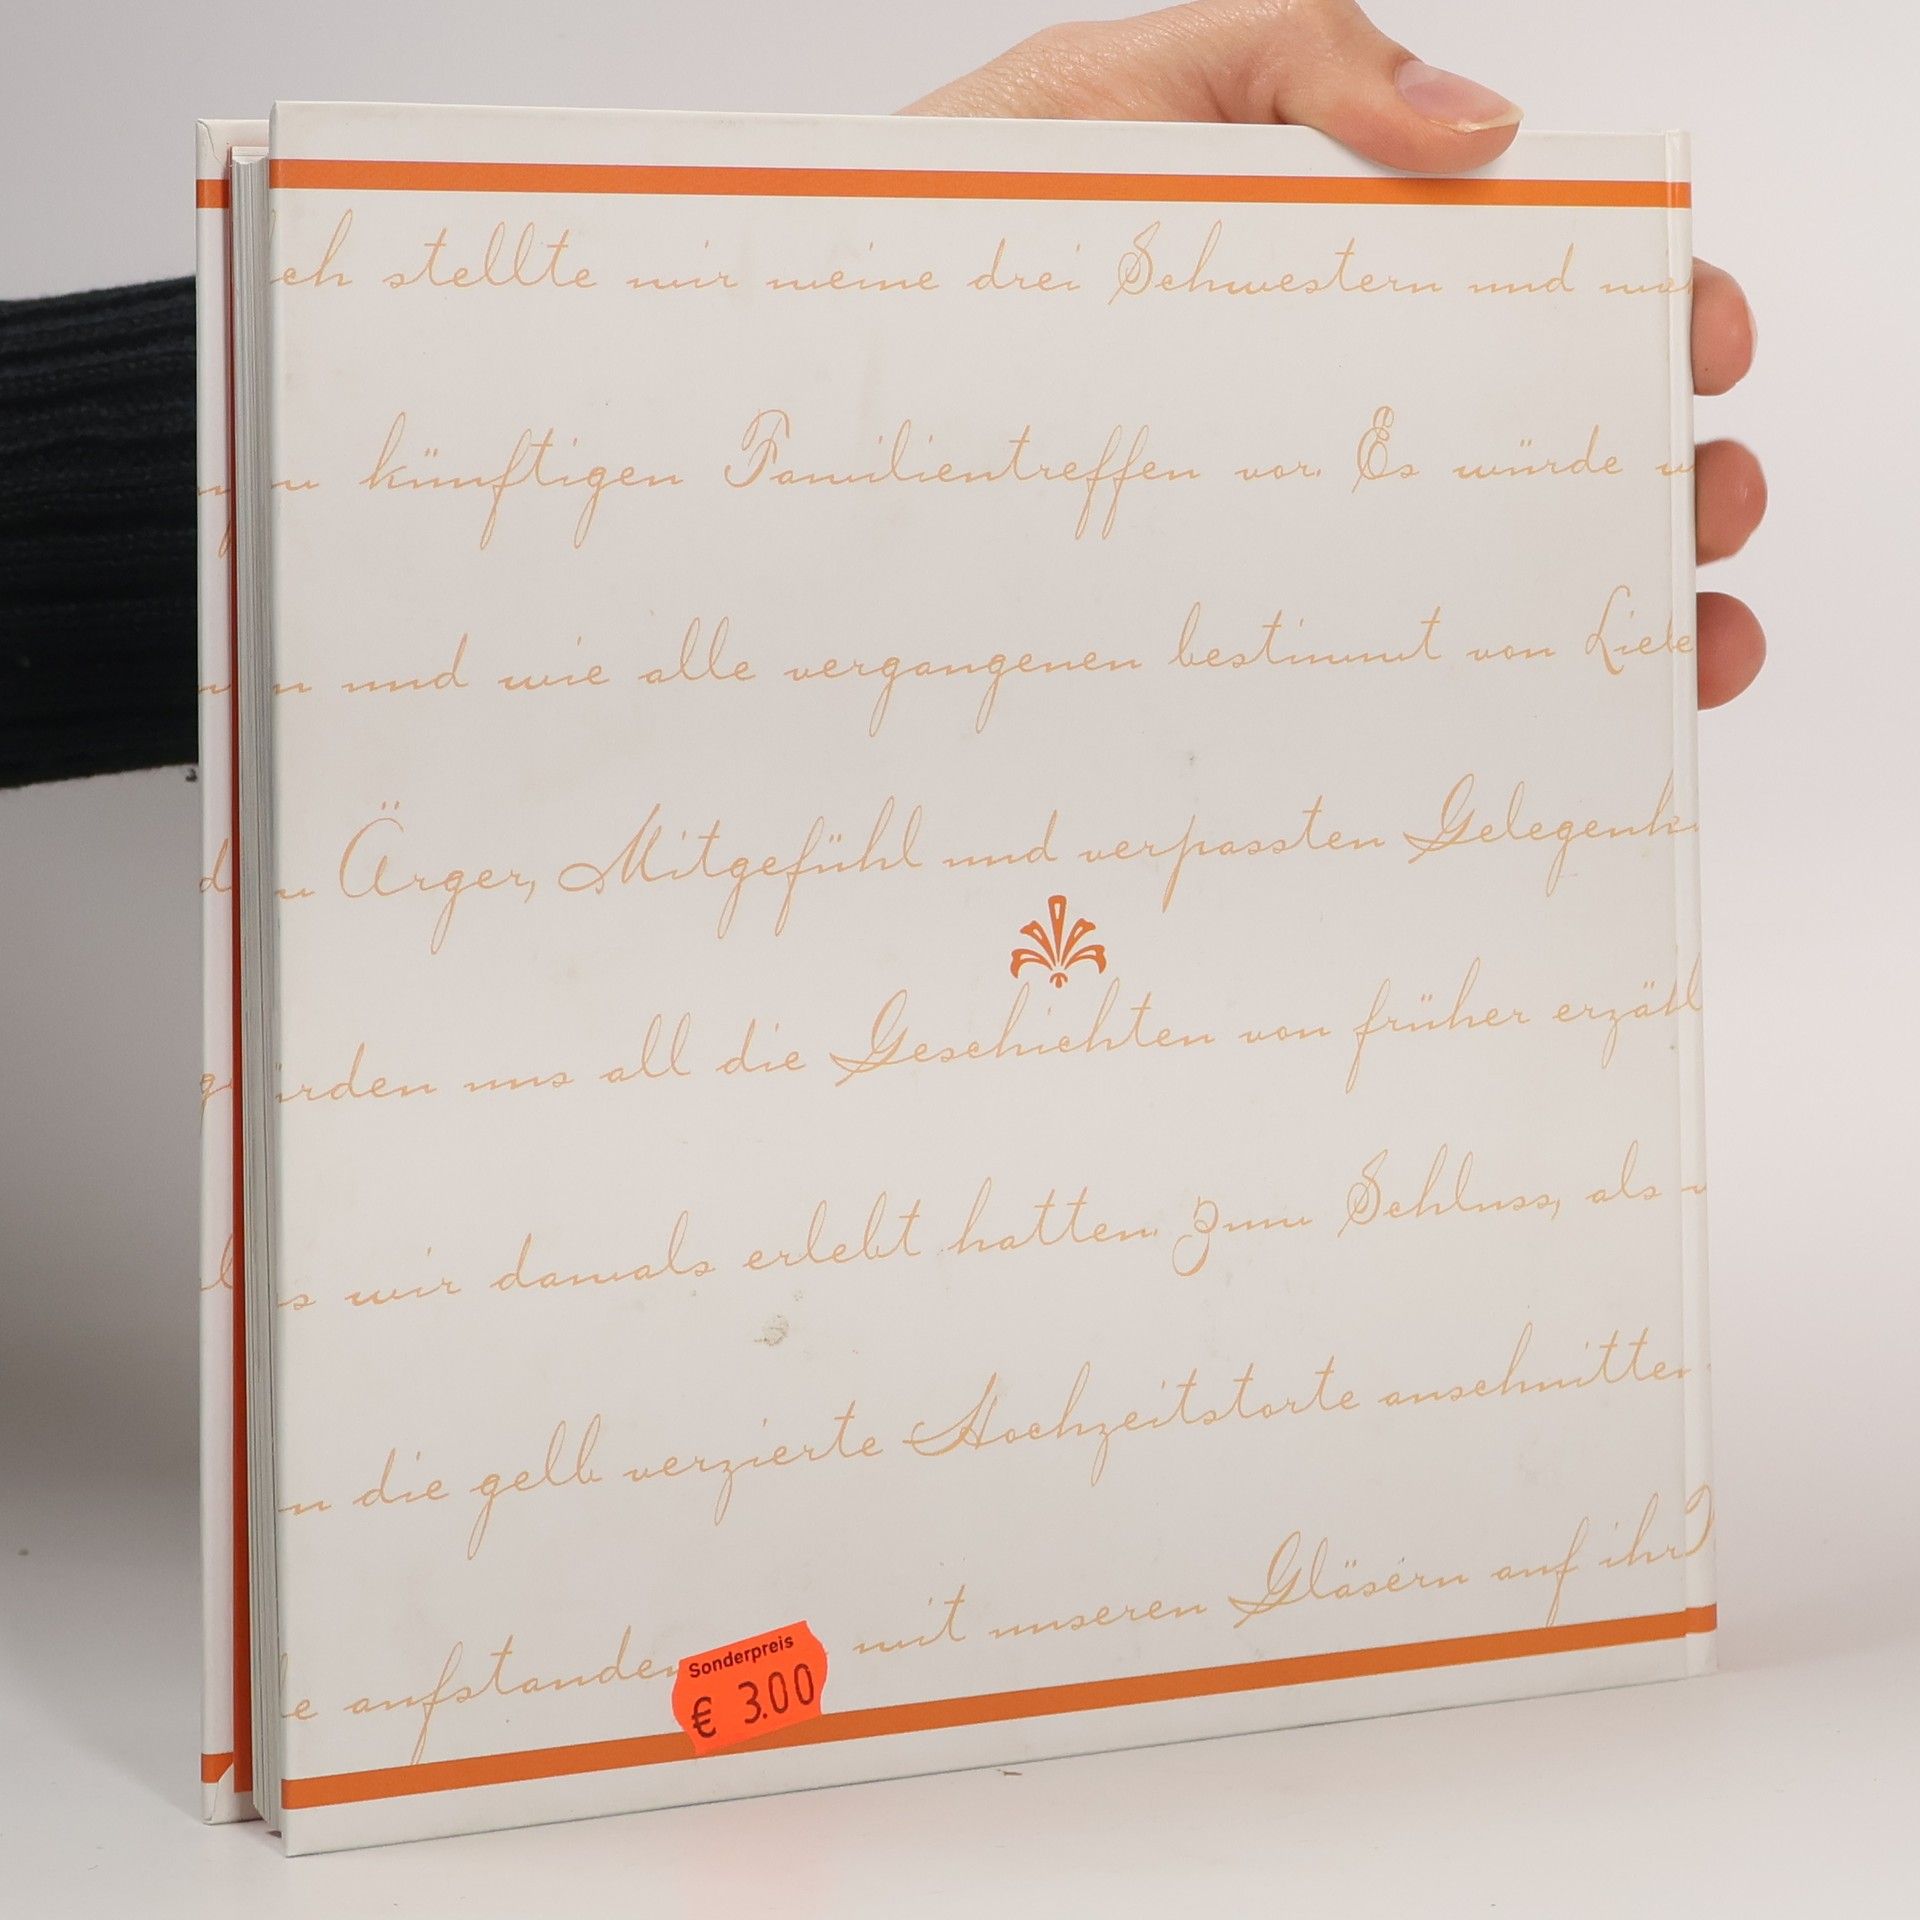 ich stellte mir meine drei Schwestern und
künftigen Familientreffen vor. Es würde
und wie alle vergangenen bestimmt von Liebe
Ärger, Mitgefühl und verpassten Gelegenh
rden uns all die Geschichten von früher erzähl
s wir damals erlebt hatten. Zum Schluss, als
n die gelb verzierte Hochzeitstorte anschnitten
e aufstanden mit unseren Gläsern auf ihr
Sonderpreis
€ 3.00